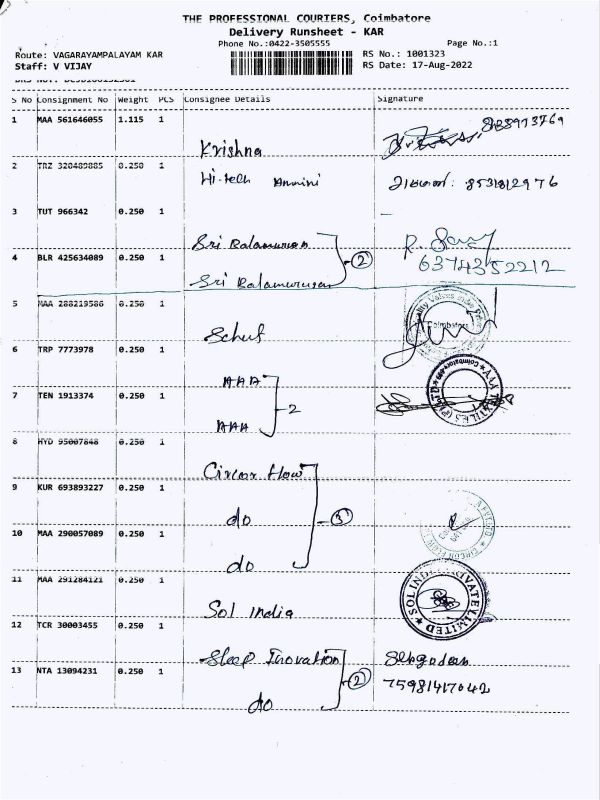 THE PROFESSIONAL COURIERS, Coimbatore
Delivery Runsheet - KAR
Phone No.:0422-3505555 Page No.:1
Route: VAGARAYAMPALAYAM KAR RS No.: 1001323
Staff: V VIJAY RS Date: 17-Aug-2022
S No Consignment No Weight PCS Consignee Details Signature
1 MAA 561646055 1.115 1
Krishna
2 TRZ 320489885 0.250 1
Hi-tech
3 TUT 966342 0.250 1
Sri Balamurugan
4 BLR 425634089 0.250 1 2
6374352212
Sri Balamurugan
5 MAA 288219586 0.250 1
Coimbatore
6 TRP 7773978 0.250 1
AAA
7 TEN 1913374 0.250 1 2
AAA
8 HYD 95007848 0.250 1
Circor Flow
9 KUR 693893227 0.250 1
do 3
10 MAA 290057089 0.250 1
do
11 MAA 291284121 0.250 1
Sol India
SOL INDIA PRIVATE LIMITED
12 TCR 30003455 0.250 1
Sleep Inovation
13 NTA 13094231 0.250 1 2
75981417042
do